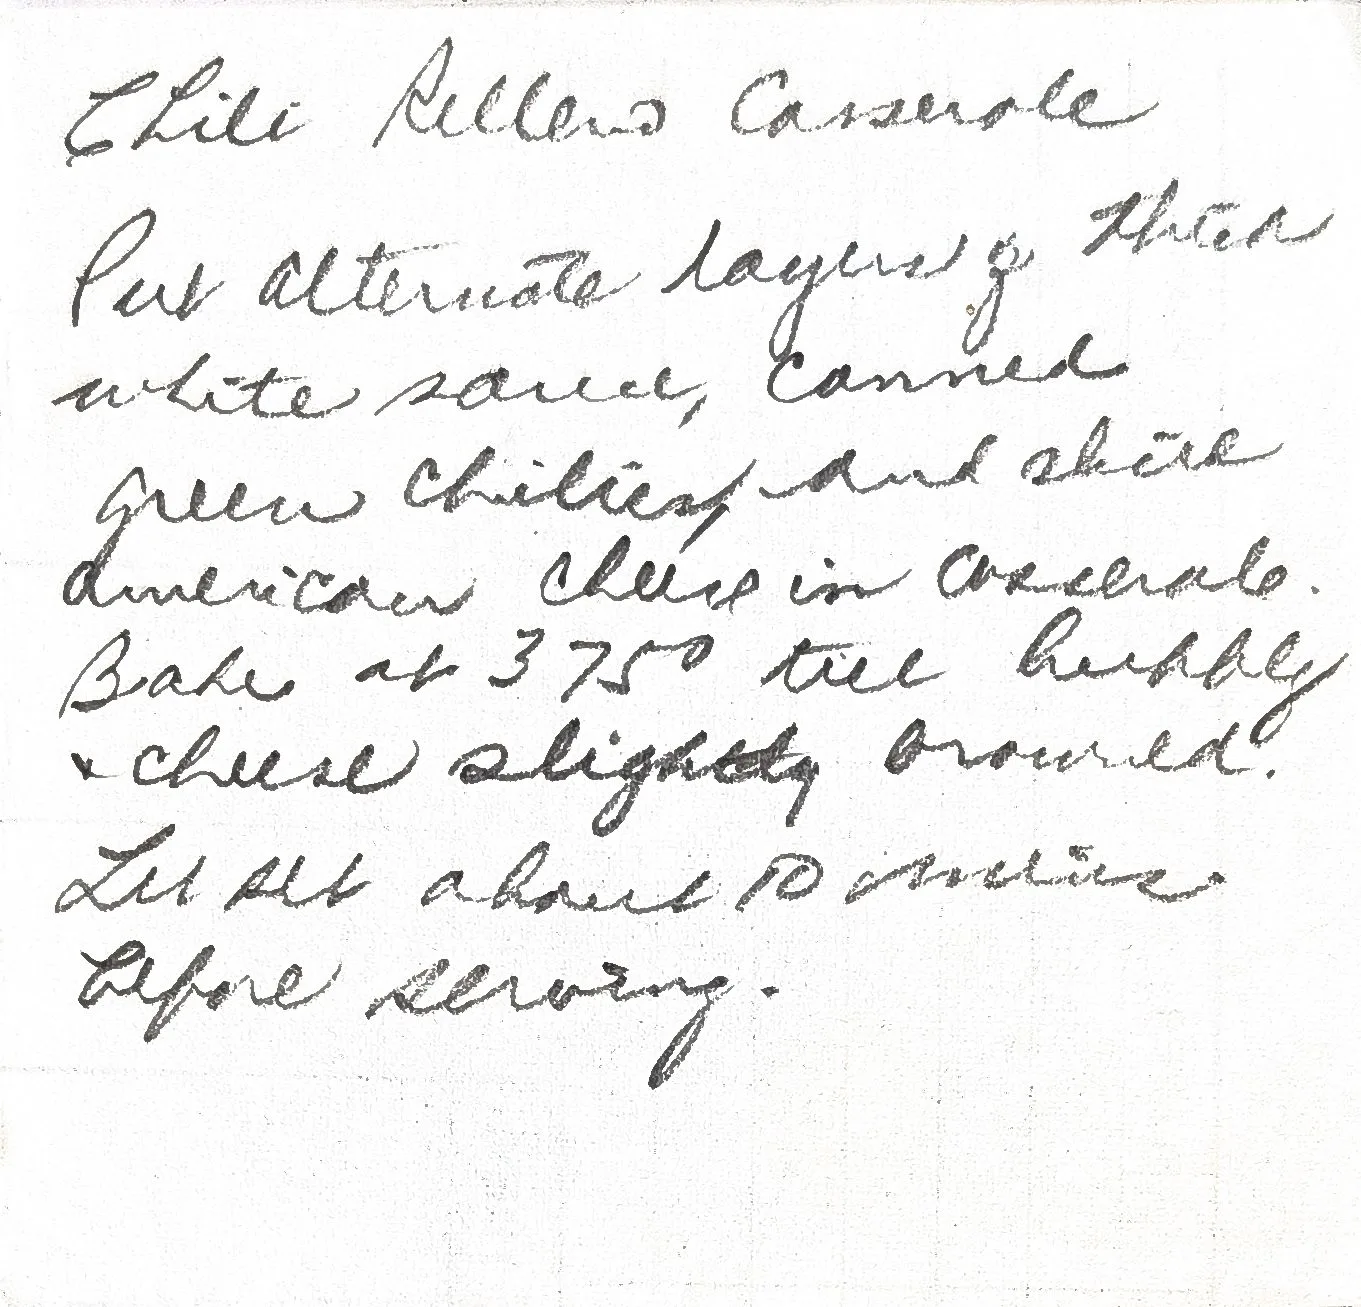 Chili Rellenos Casserole
Put alternate layers of thin
white sauce, canned
green chilies, and
American cheese in casserole.
Bake at 375° till bubbly
+ cheese slightly browned.
Let set about 10 minutes
before serving.